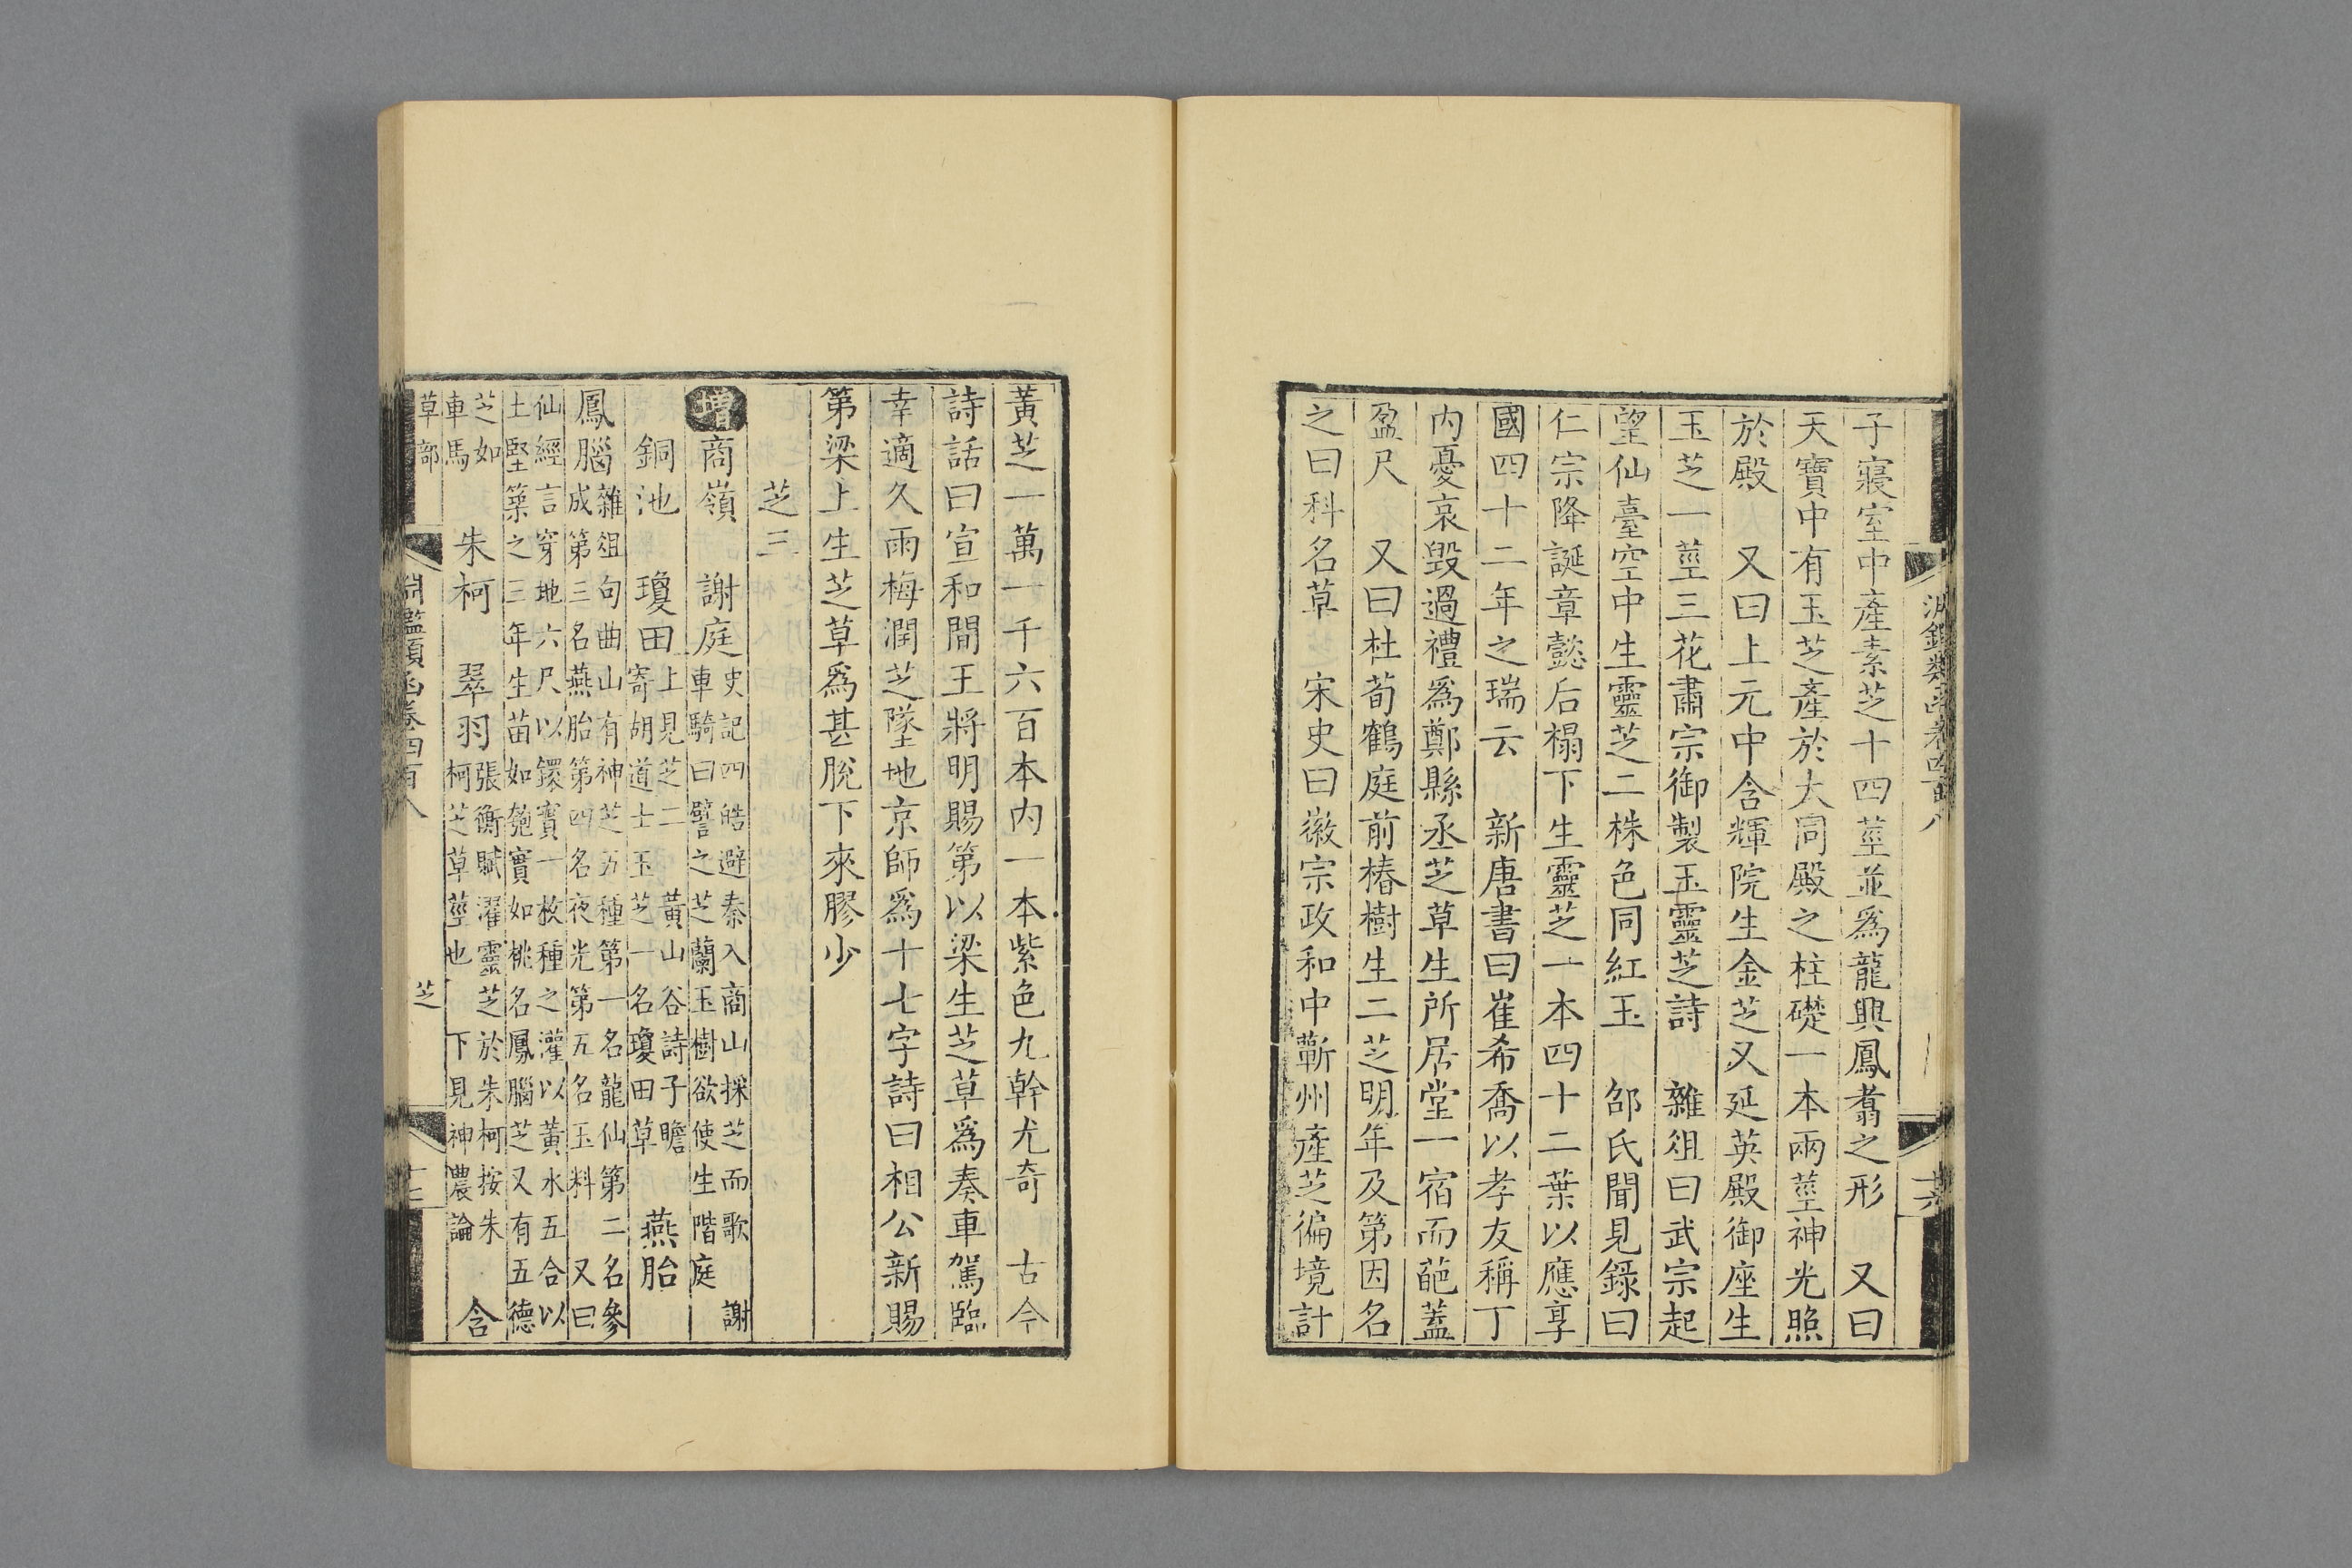 子寢室中產素芝十四莖並爲龍興鳳翥之形　又曰
天寶中有玉芝產於大同殿之柱礎一本兩莖神光照
於殿　又曰上元中含輝院生金芝又延英殿御座生
玉芝一莖三花肅宗御製玉靈芝詩　雜俎曰武宗起
望仙臺空中生靈芝二株色同紅玉　邵氏聞見錄曰
仁宗降誕章懿后榻下生靈芝一本四十二葉以應享
國四十二年之瑞云　新唐書曰崔希喬以孝友稱丁
內憂哀毀過禮爲鄭縣丞芝草生所居堂一宿而葩蓋
盈尺　又曰杜荀鶴庭前椿樹生二芝明年及第因名
之曰科名草　宋史曰徽宗政和中蘄州產芝徧境計
黃芝一萬一千六百本內一本紫色九幹尤奇　古今
詩話曰宣和間王將明賜第以梁生芝草爲奏車駕臨
幸適久雨梅潤芝墜地京師爲十七字詩曰相公新賜
第梁上生芝草爲甚脫下來膠少
芝三
增商嶺　謝庭史記四皓避秦入商山採芝而歌　謝
車騎曰譬之芝蘭玉樹欲使生階庭
銅池　瓊田上見芝二　黃山谷詩子瞻
寄胡道士玉芝一名瓊田草　燕胎
鳳腦雜俎句曲山有神芝五種第一名龍仙第二名參
成第三名燕胎第四名夜光第五名玉料　又曰
仙經言穿地六尺以鐶寶一枚種之灌以黃水五合以
土堅築之三年生苗如匏實如桃名鳳腦芝又有五德
芝如
車馬　朱柯　翠羽張衡賦濯靈芝於朱柯按朱
柯芝草莖也　下見神農論　含
草部
淵鑑類函卷四百八
芝